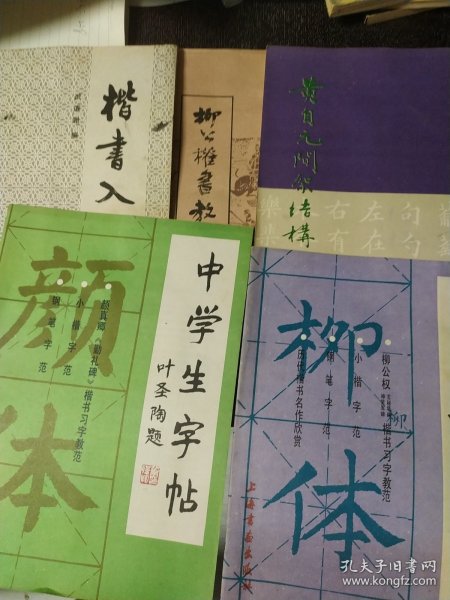 楷书入
柳公权书教
黄自元间架结構
右有
左在
句勺
樂
颜体
颜真卿《勤礼碑》楷书习字教范
小楷字范
钢笔字范
中学生字帖
叶圣陶题
柳体
柳公权
楷书习字教范
小楷字范
钢笔字范
历代楷书名作欣赏
柳
上海書画出版社
孔夫子旧书网
www.kongfz.com